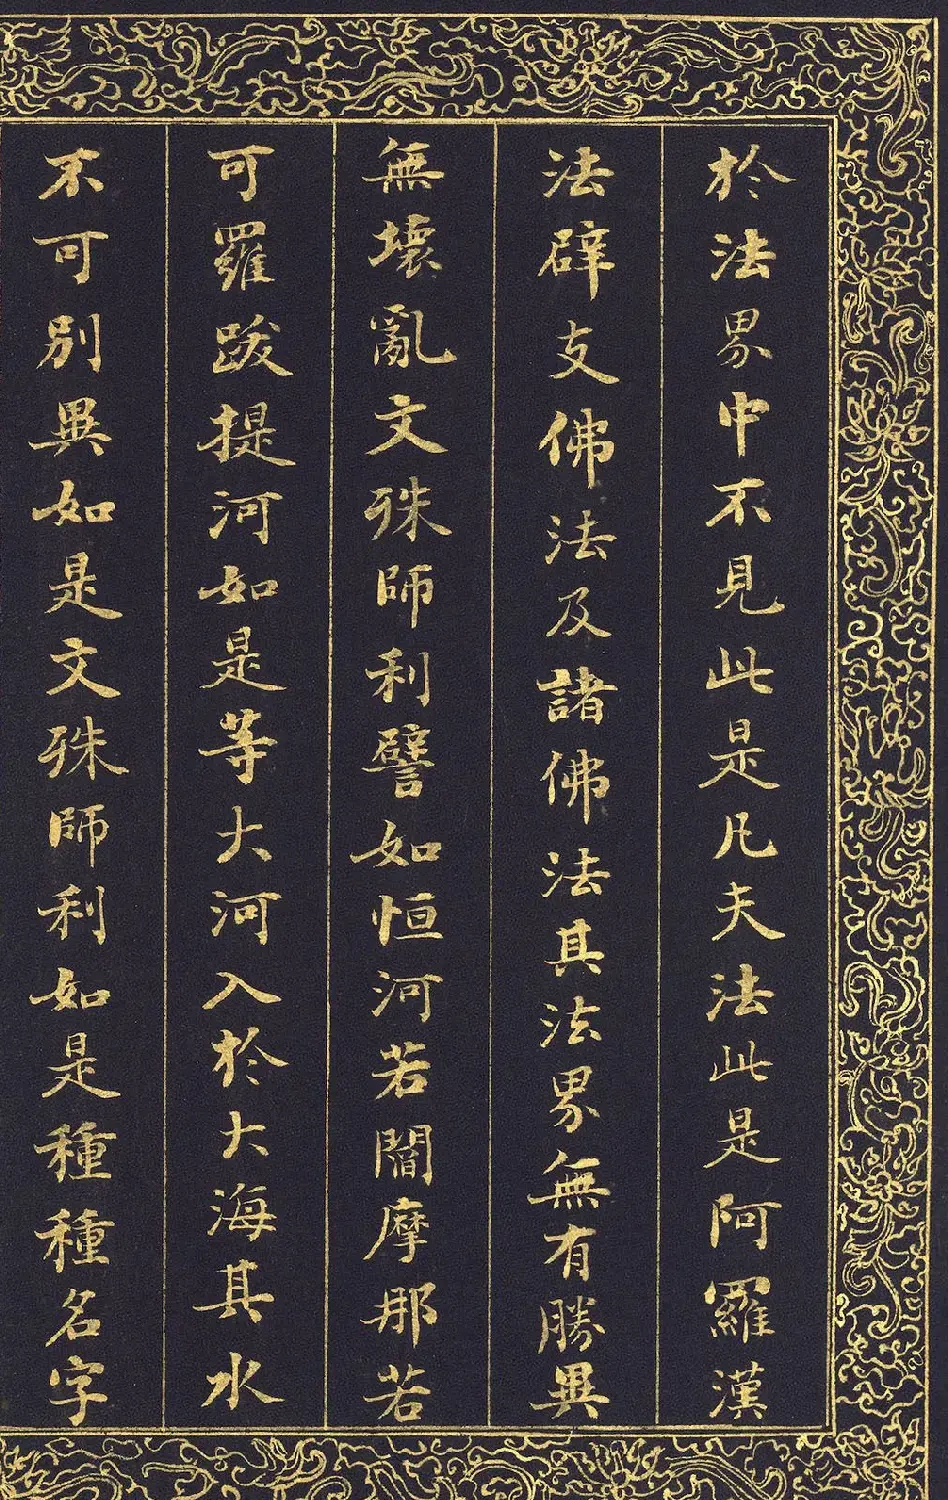 於法界中不見此是凡夫法此是阿羅漢
法辟支佛法及諸佛法其法界無有勝異
無壞亂文殊師利譬如恒河若閻摩那若
可羅跋提河如是等大河入於大海其水
不可別異如是文殊師利如是種種名字